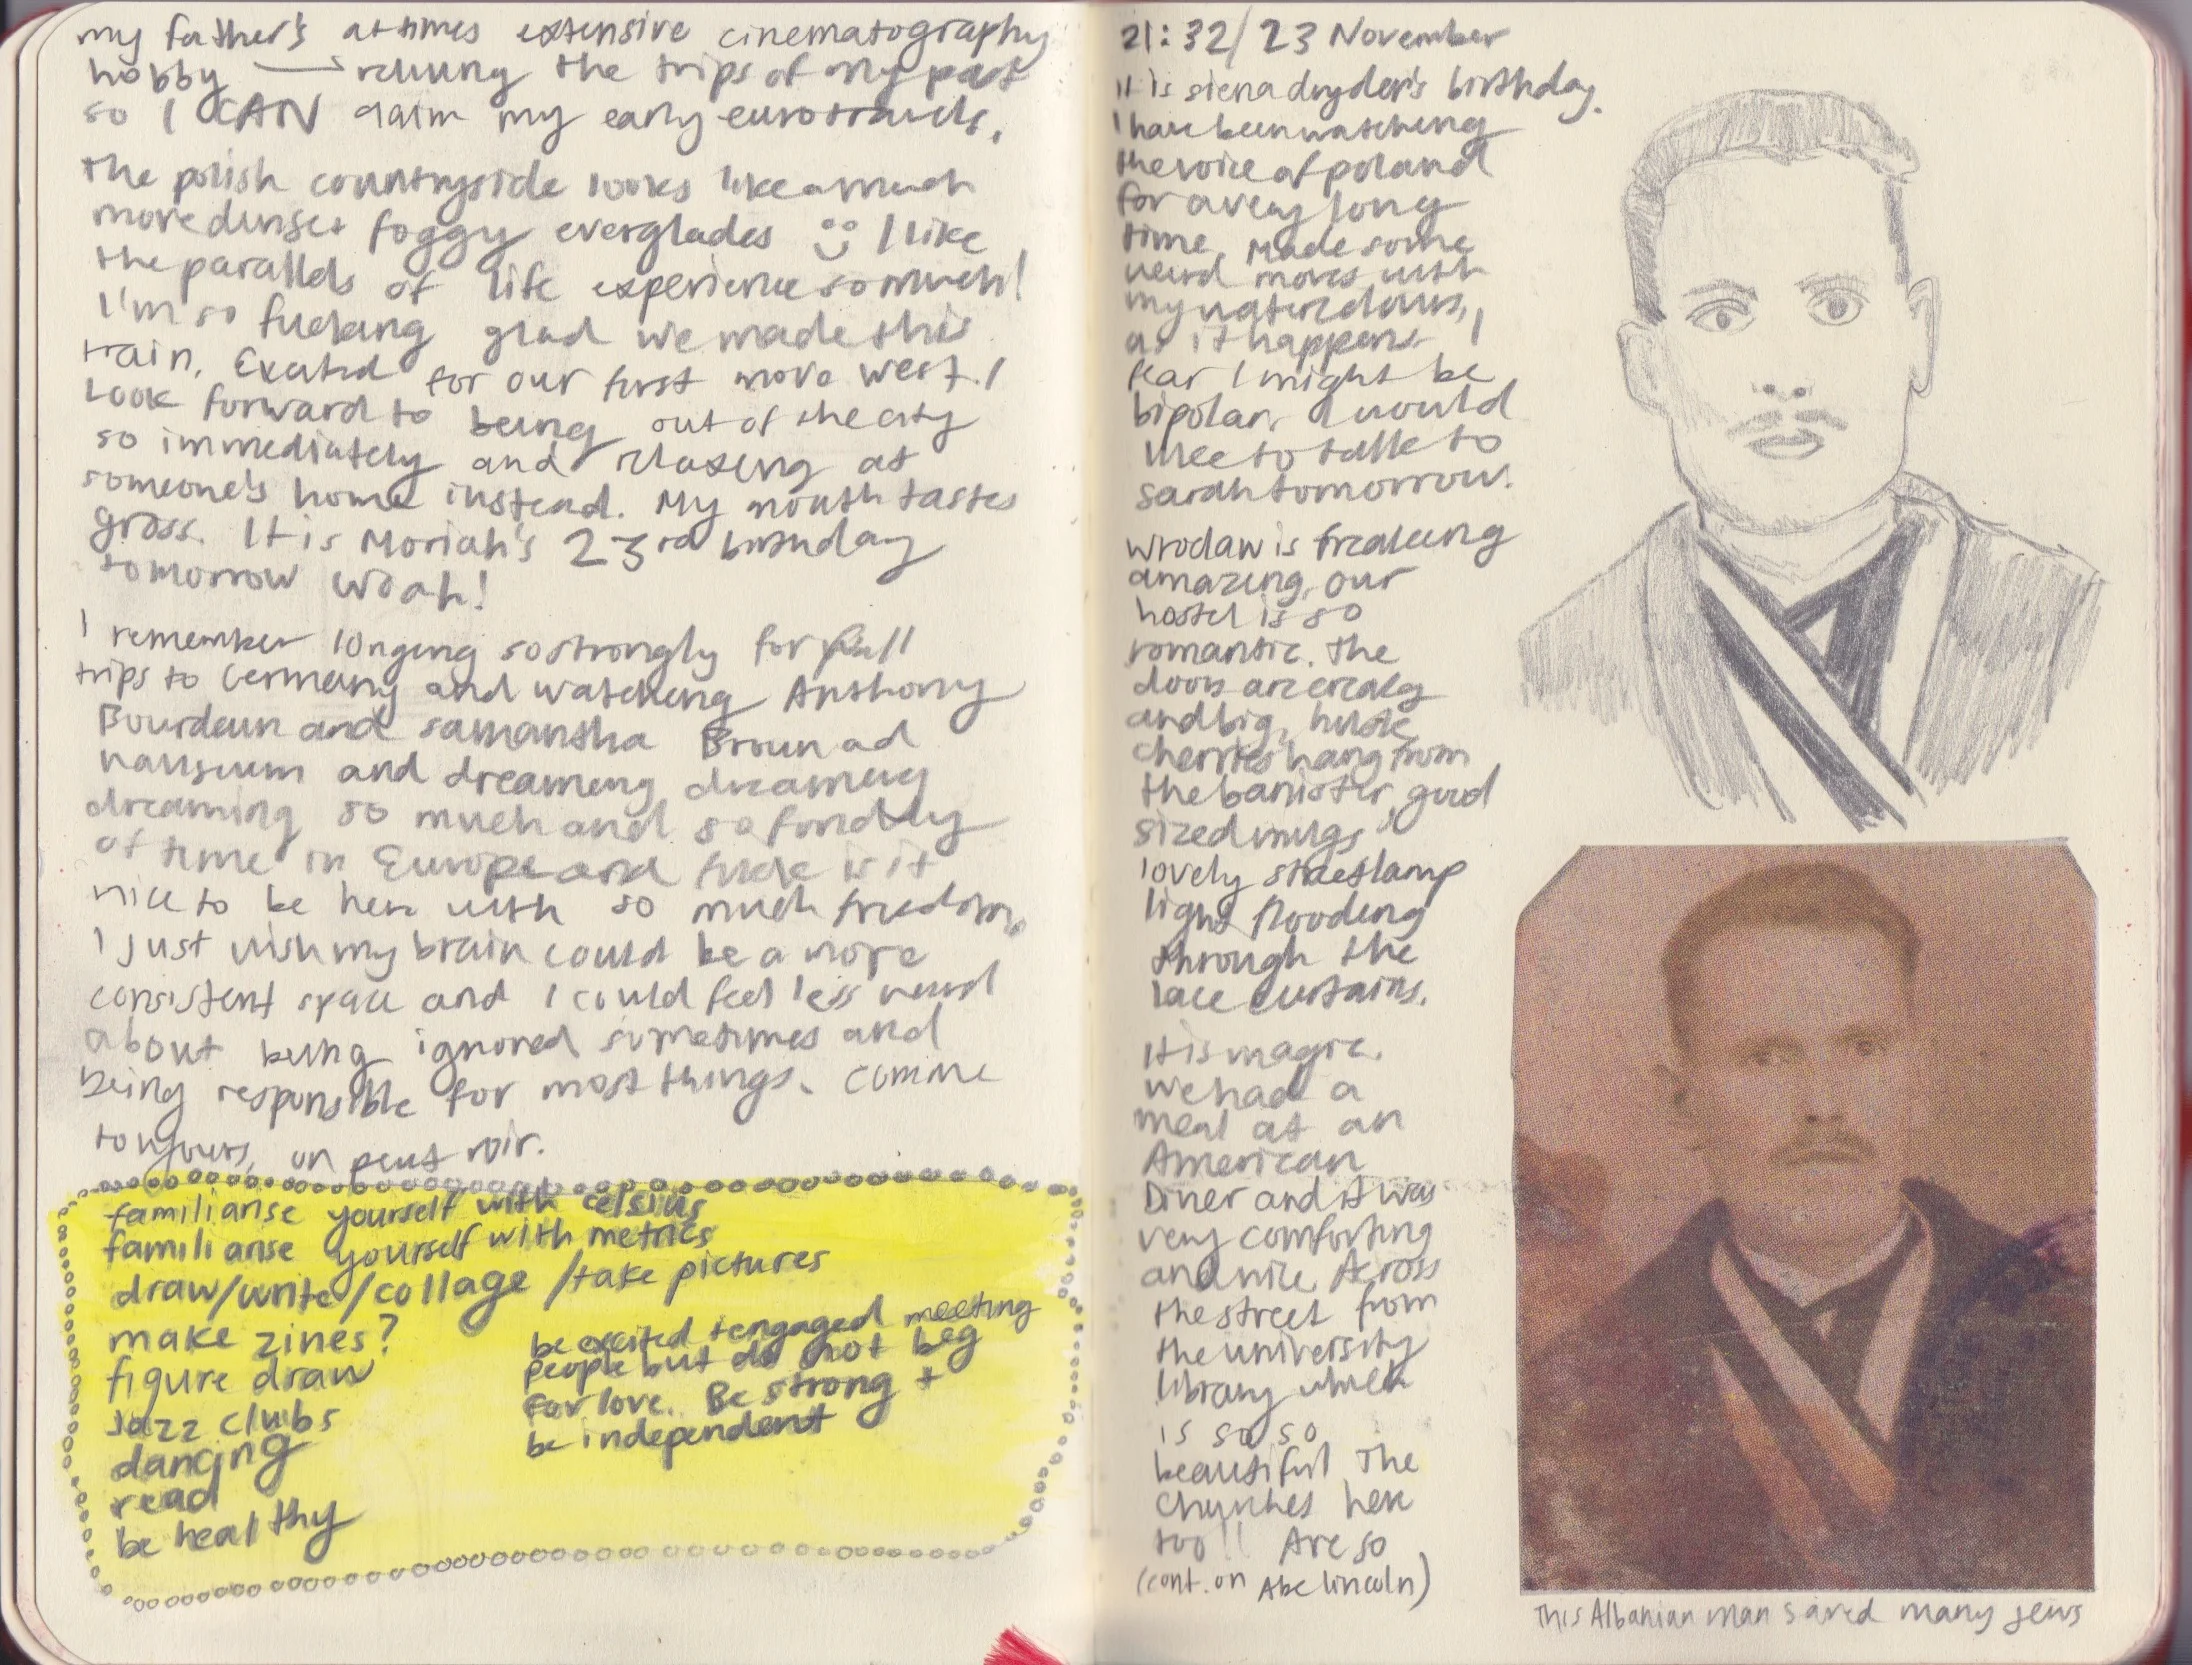 my father's at times extensive cinematography
hobby → reliving the trips of my past
so I CAN claim my early eurotravels.
the polish countryside looks like a much
more dense + foggy everglades :) I like
the parallels of life experience so much!
I'm so fucking glad we made this
train. Excited for our first move west. I
look forward to being out of the city
so immediately and relaxing at
someone's home instead. My mouth tastes
gross. It is Moriah's 23rd birthday
tomorrow woah!
I remember longing so strongly for fall
trips to Germany and watching Anthony
Bourdain and samantha Brown ad
nauseum and dreaming dreaming
dreaming so much and so fondly
of time in Europe and fuck is it
nice to be here with so much freedom
I just wish my brain could be a more
consistent space and I could feel less weird
about being ignored sometimes and
being responsible for most things. comme
toujours, on peut voir.
familiarise yourself with celsius
familiarise yourself with metrics
draw/write/collage/take pictures
make zines?
figure draw
Jazz clubs
dancing
read
be healthy
be excited + engaged meeting
people but do not beg
for love. Be strong +
be independent
21:32/23 November
It is siena dryden's birthday.
I have been watching
the voice of poland
for a very long
time. Made some
weird moves with
my watercolours,
as it happens I
fear I might be
bipolar. I would
like to talk to
sarah tomorrow.
wroclaw is freaking
amazing. our
hostel is so
romantic. The
doors are creaky
and big, huge
cherries hang from
the banister, good
sized mugs,
lovely streetlamp
light flooding
through the
lace curtains.
It is magic.
We had a
meal at an
American
Diner and it was
very comforting
and nice. Across
the street from
the university
library which
is so so
beautiful. The
churches here
too!! Are so
(cont. on Abe lincoln)
This Albanian man saved many jews